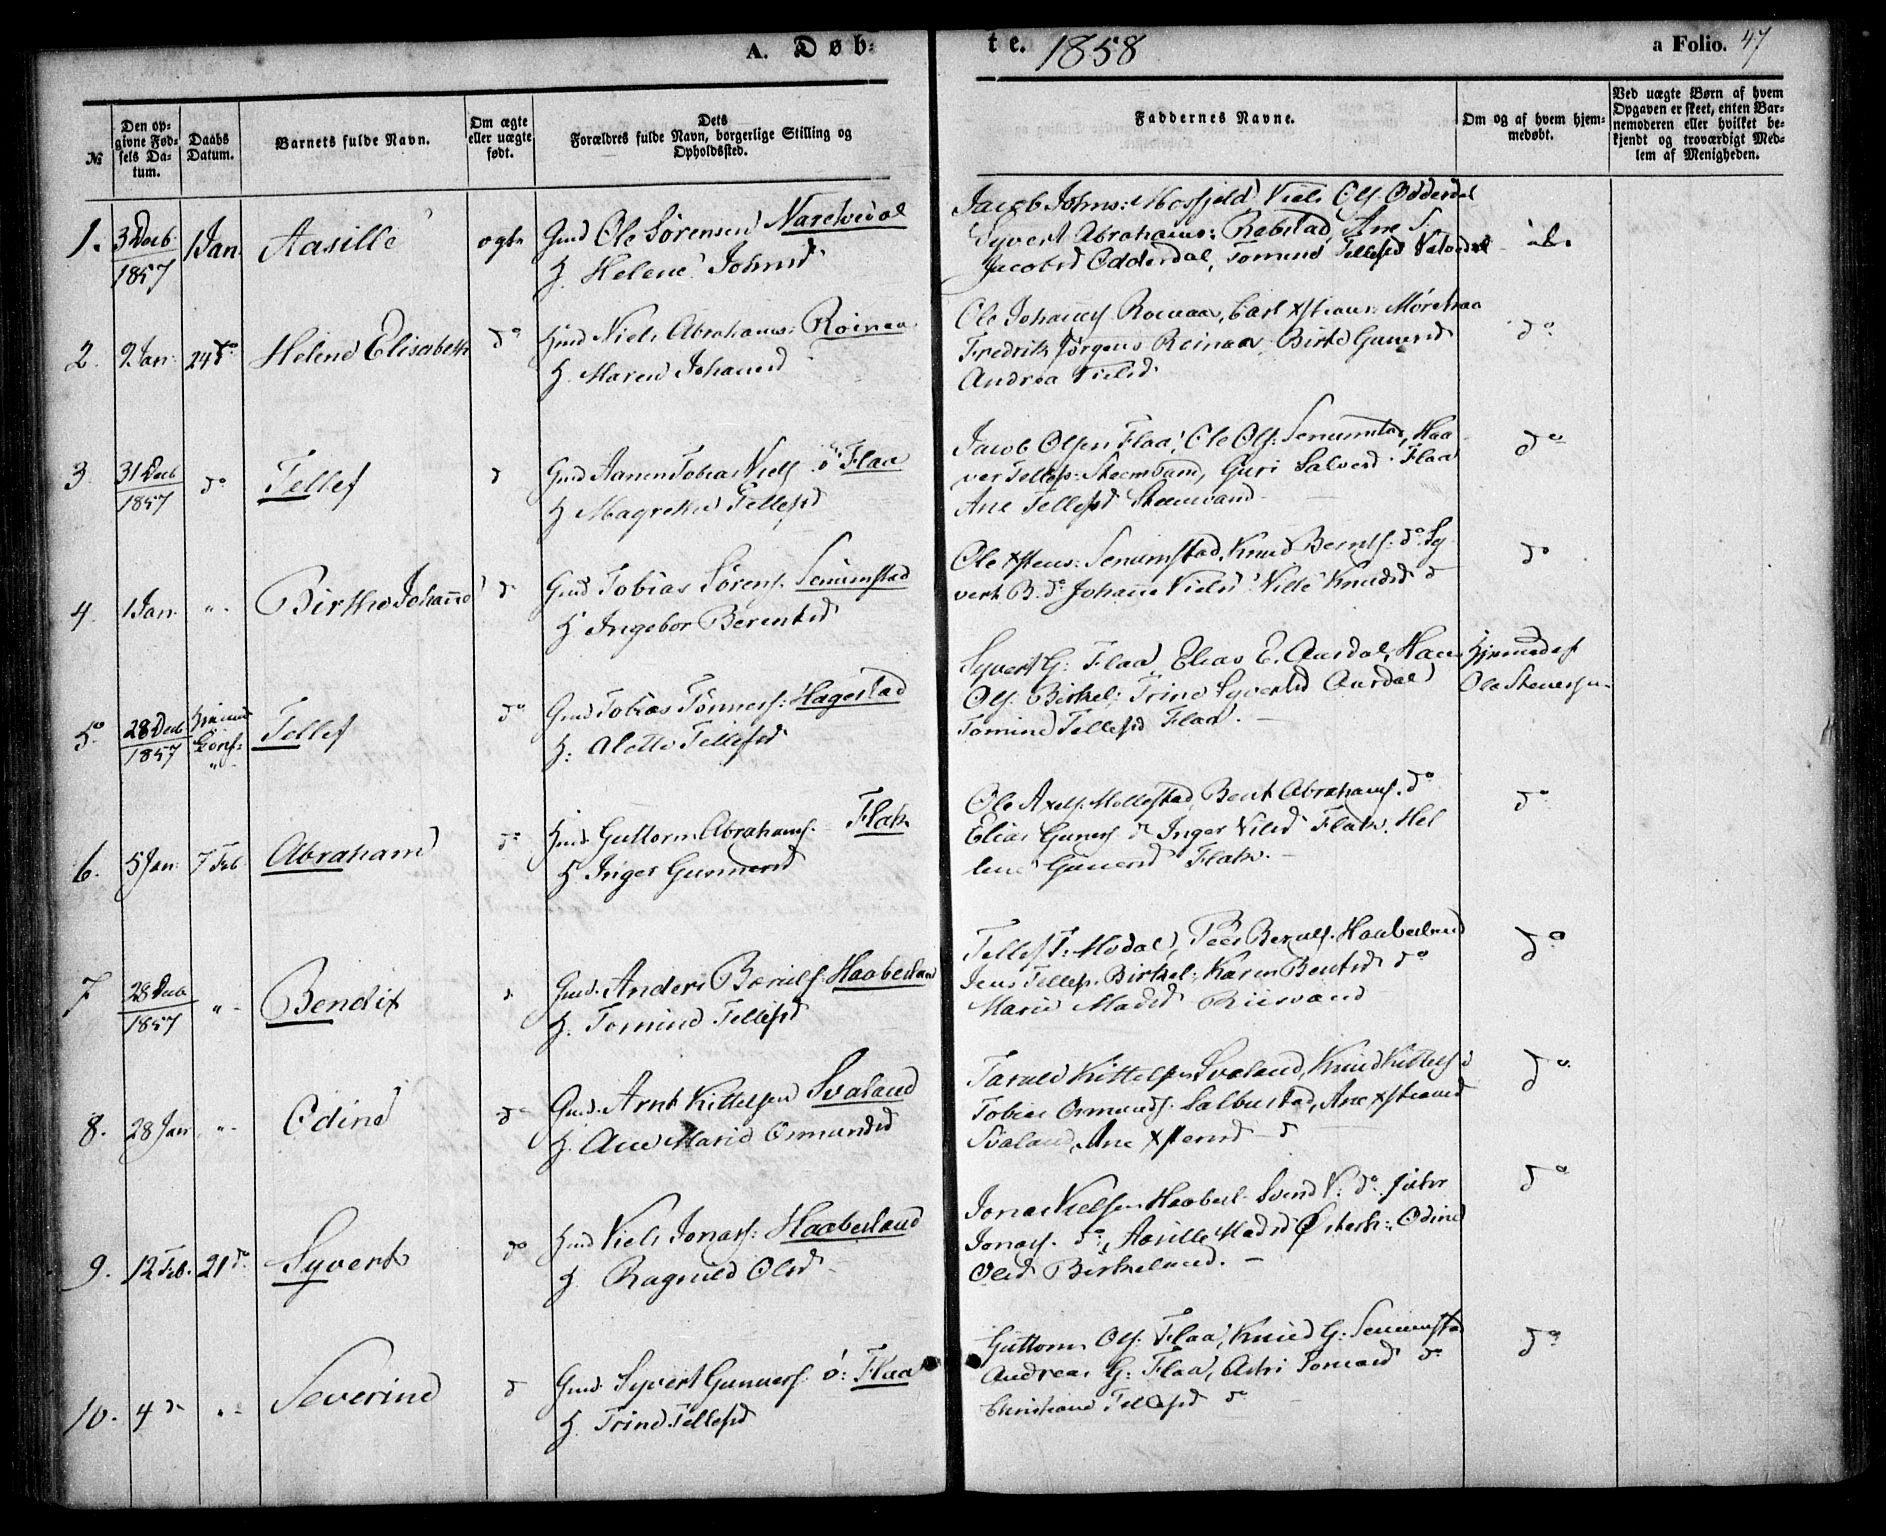 A. Døb-
te. 1858
a Folio. 47
№
Den op-
givne Fød-
sels Da-
tum.
Daabs
Datum.
Barnets fulde Navn.
Om ægte
eller uægte
født.
Dets
Forældres fulde Navn, borgerlige Stilling og
Opholdssted.
Faddernes Navne.
Om og af hvem hjem-
medøbt.
Ved uægte Børn af hvem
Opgaven er skeet, enten Bar-
nemoderen eller hvilket be-
kjendt og troværdigt Med-
lem af Menigheden.
1. 3 Decb 1857
1 Jan.
Aasille
ægte
Gmd Ole Sørensen Narelvedal
H. Helene Johnsd
Jacob Johns: Mosfjeld Niels Ols Odderdal
Syvert Abrahams: Røbstad Ane S
Jacobsd Odderdal, Tomine Tellefsd
2. 9 Jan.
24 do
Helene Elisabeth
do
Gmd Niels Abrahams: Roinaa
H. Maren Johansd
Ole Johans Roinaa, Carl Xstians:
Fredrik Jørgens Roinaa, Birte Gunersd
Andrea Nielsd
do
3. 31 Decb 1857
do
Tellef
d
Gmd Aanen Tobias Niels ö Flaa
H Magrethe Tellefsd
Jacob Olsen Flaa, Ole Ols: Senumstad, Haa
ver Tellefs: Steensvand, Guri Salvesd Flaa
Ane Tellefsd Steensvand
do
4. 1 Jan.
"
Birthe Johanne
d
Gmd Tobias Sørens. Senumstad
H Ingebor Berentsd
Ole Xstens: Senumstad, Knud Bernts: do Sy
vert B. do Johanne Nielsd Knudsd d
do
5. 28 Decb 1857
Tellef
do
Gmd Tobias Tønners: Hagestad
H: Alette Tellefsd
Syvert G: Flaa, Elias E. Aardal, Hans
Ols Birkel; Trine Syvertsd Aardal
Tomine Tellefsd Flaa.
Hjemmed af
Ole Stensen
6. 5 Jan.
7 Feb
Abraham
do
Gmd. Guttorm Abrahams. Flak
H. Inger Gunnersd
Ole Axels. Mollestad, Bent Abrahams. do
Elias Guners do Inger Nilsd Flak. Hel
lene Gunersd Flak.
do
7. 28 Decb 1857
"
Bendix
Gmd. Anders Bærulfs: Haabesland
H. Tomine Tellefsd
Tellef T: Modal, Peer Berulfs. Haabesland
Jens Tellefs. Birkel: Karen Bentsd do
Marie Madsd Riisvand
do
8. 28 Jan
"
Odine
do
Gmd. Arnt Kittelsen Svaland
H. Ane Marie Osmundsd
Tarald Kittelsen Svaland, Knud Kittels d
Tobias Osmunds: Salbustad, Ane Xstiansd
Svaland, Ane Xstensd d
do
9. 12 Feb.
21 do
Syvert
do
Gmd Niels Jonass: Haabesland
H. Ragnild Olsd
Jonas Nielsen Haabesl. Svend N: do
Jonass. do, Aasille Madsd Odine
Olsd Birkeland.
do
10. 4 do
"
Severine
d
Gmd. Syvert Gunners. ö: Flaa
H. Trine Tellefsd
Guttorm Ols: Flaa, Knud G: Senumstad
Andreas G: Flaa, do
Christiane Tellefsd do
do